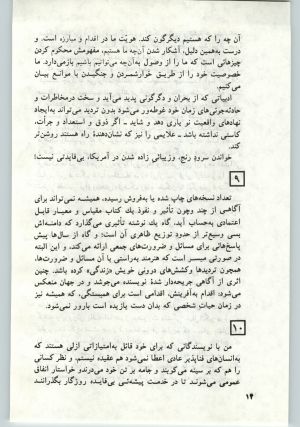 آن چه را که هستیم دیگرگون کند. هویت ما در اقدام و مبارزه است. و
درست به‌همین دلیل، آشکار شدن آن‌چه ما هستیم، مفهومش محکوم کردن
چیزهائی است که ما را از وصول به‌آنچه می‌توانیم باشیم بازمی‌دارد. ما
خصوصیت خود را از طریق خوارشمردن و جنگیدن با موانع بیان
می‌کنیم.
ادبیاتی که از بحران و دگرگونی پدید می‌آید و سخت درمخاطرات و
حادثه‌جوئی‌های زمان خود غوطه‌ور می‌شود بدون تردید می‌تواند به‌ایجاد
نهادهای واقعیت نو یاری دهد و شاید ـ اگر ذوق و استعداد و جرأت،
کاستی نداشته باشد ـ علایمی را نیز که نشان‌دهندهٔ راه هستند روشن‌تر
کند.
خواندن سرود رنج، وزیبائی زاده شدن در آمریکا، بی‌فایدتی نیست!
۹
تعداد نسخه‌های چاپ شده یا به‌فروش رسیده، همیشه نمی‌تواند برای
آگاهی از چند وچون تأثیر و نفوذ یك کتاب مقیاس و معیار قابل
اعتمادی به‌حساب آید. گاه یك نوشته تأثیری می‌گذارد که دامنه‌اش
بسی وسیع‌تر از حدود توزیع ظاهری آن است؛ و گاه از سال‌ها پیش
پاسخ‌هائی برای مسائل و ضرورت‌های جمعی ارائه می‌کند، و این البته
در صورتی میسر است که هنرمند به‌راستی با آن مسائل و ضرورت‌ها،
همچون تردیدها وکشش‌های درونی خویش «زندگی» کرده باشد. چنین
اثری از آگاهی جریحه‌دار شدهٔ نویسنده می‌جوشد و در جهان منعکس
می‌شود: اقدام به‌آفرینش، اقدامی است برای همبستگی، که همیشه نیز
در زمان حیات شخصی که بدان دست یازیده است بارور نمی‌شود.
۱۰
من با نویسندگانی که برای خود قائل به‌امتیازاتی ازلی هستند که
به‌انسان‌های فناپذیر عادی اعطا نمی‌شود هم عقیده نیستم، و نظر کسانی
را هم که بر سینه می‌کوبند و جامه بر تن خود می‌درندو خواستار انفاق
عمومی می‌شوند تا در خدمت پیشه‌ئی بی‌فایده روزگار بگذرانند
۱۴